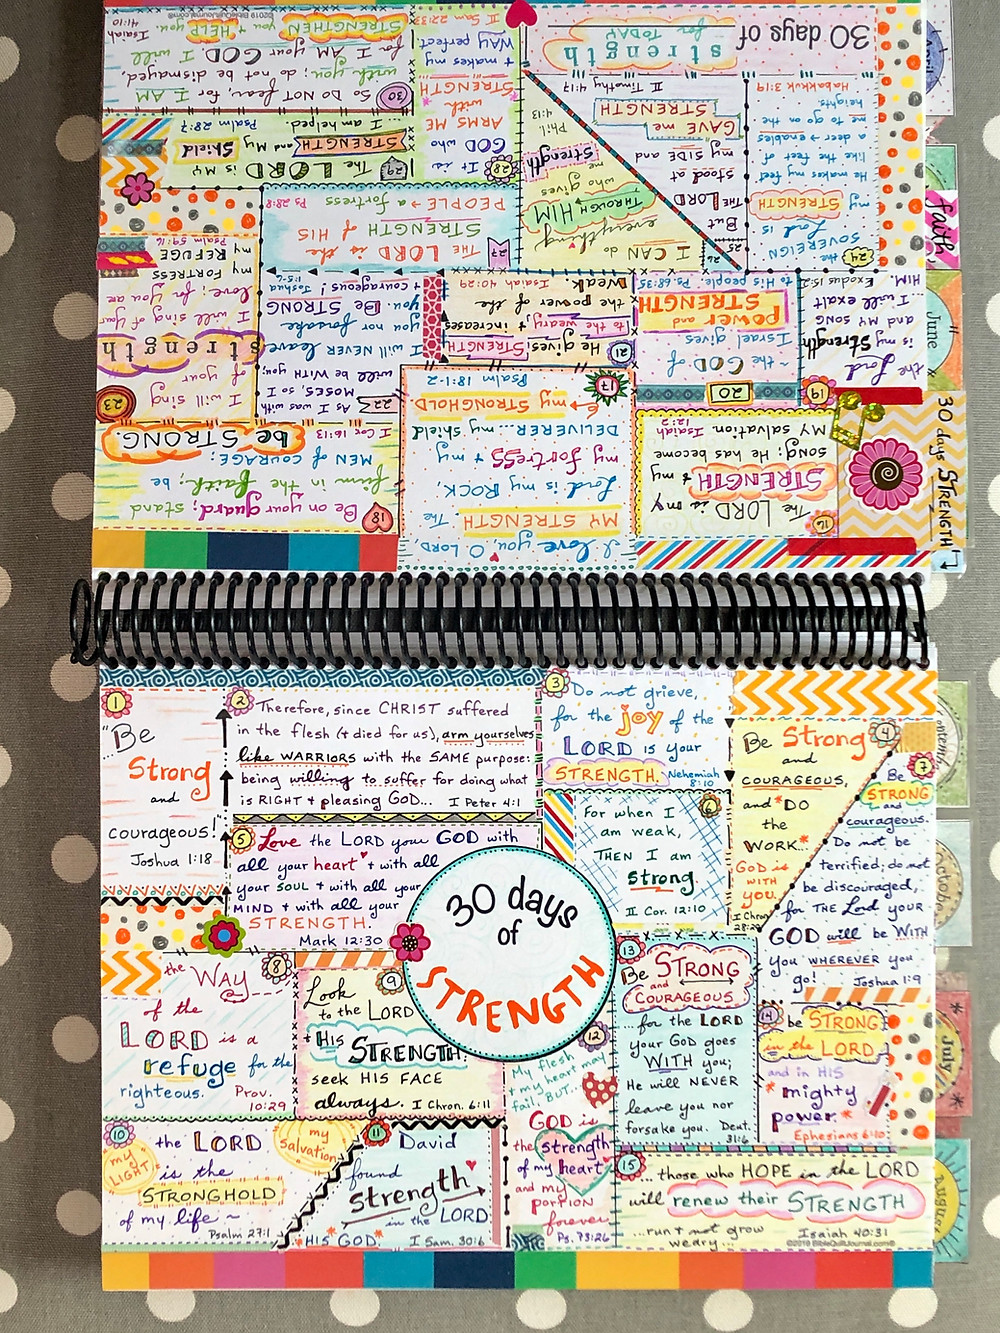 30 days
of
STRENGTH
1
"Be
Strong
and
courageous!"
Joshua 1:18
2
Therefore, since CHRIST suffered
in the flesh (+ died for us), arm yourselves
like WARRIORS with the SAME purpose:
being willing to suffer for doing what
is RIGHT + pleasing GOD... I Peter 4:1
3
Do not grieve,
for the joy of the
LORD is your
STRENGTH. Nehemiah
8:10
4
Be Strong
and
COURAGEOUS,
and *DO
the
WORK..*
GOD is
WITH
you.
I Chron.
28:20
5
Love the LORD your GOD with
all your heart + with all
your SOUL + with all your
MIND + with all your
STRENGTH.
Mark 12:30
6
For when I
am weak,
THEN I am
strong.
II Cor. 12:10
7
Be
STRONG
and
courageous.
Do not be
terrified; do not
be discouraged,
for THE Lord YOUR
GOD will be WITH
you WHEREVER you
go! Joshua 1:9
8
the WAY
of the
LORD is a
refuge for the
righteous. Prov.
10:29
9
Look
to the LORD
+ His
STRENGTH:
seek HIS FACE
always. I Chron. 16:11
10
the LORD
my
LIGHT
my
Salvation
is the
STRONGHOLD
of my life ~
Psalm 27:1
11
David
found
strength
in the LORD
HIS GOD. I Sam. 30:6
12
My flesh
+ my heart may
fail, BUT..
GOD is
the strength
of my heart
and my
PORTION
forever
Ps. 73:26
13
Be STRONG
and
COURAGEOUS
...for the LORD
your GOD goes
WITH you;
He will NEVER
leave you nor
forsake you. Deut.
31:6
14
be STRONG
in the LORD
and in HIS
mighty
power*
Ephesians 6:10
15
...those who HOPE in the LORD
will renew their STRENGTH
...run + not grow
weary... Isaiah 40:31
©2019 BibleQuiltJournal.com®
30 days of
strength
for TODAY
16
The LORD is my
STRENGTH + my
song; He has become
MY salvation. Isaiah
12:2
17
I love you, O LORD
MY STRENGTH. The
Lord is my ROCK,
my fortress + my
DELIVERER... my shield
+ my STRONGHOLD.
Psalm 18:1-2
18
Be on your guard; stand
firm in the faith; be
MEN of COURAGE;
be STRONG.
I Cor. 16:13
19
the Lord
is my Strength
and MY SONG
... I will exalt
HIM. Exodus 15:2
20
...the GOD of
Israel gives
power and
STRENGTH
to His people. Ps. 68:35
21
He gives STRENGTH
to the weary, +
+ increases
the power of the
weak.
Isaiah 40:29
22
As I was with
MOSES, so I
will be WITH you;
I will NEVER leave
you nor forsake
you. Be STRONG
+ courageous. Joshua
1:5-6
23
I will sing
of your
strength
I will sing of your
love; for you are
my FORTRESS
my REFUGE
Psalm 59:16
24
the
SOVEREIGN
Lord is
my
STRENGTH
He makes my feet
like the feet of
a deer → enables
me to go on the
heights.
Habakkuk 3:19
25
But
the LORD
stood at
my SIDE and
GAVE me
STRENGTH
II Timothy 4:17
26
I CAN do
everything
THROUGH HIM
who gives
me
strength
Phil.
4:13
27
THE LORD is the
STRENGTH of HIS
PEOPLE → a fortress
Ps 28:8
28
It is
GOD who
ARMS ME
with
STRENGTH
+ makes my
WAY perfect
II Sam 22:33
29
The LORD is MY
STRENGTH and My Shield
... I am helped. Psalm 28:7
30
So DO NOT fear, for I AM
with you; do not be dismayed,
for I AM your GOD. I will
STRENGTHEN you + HELP you.
Isaiah
41:10
©2019 BibleQuiltJournal.com®
30 days STRENGTH
faith
June
October
July
August